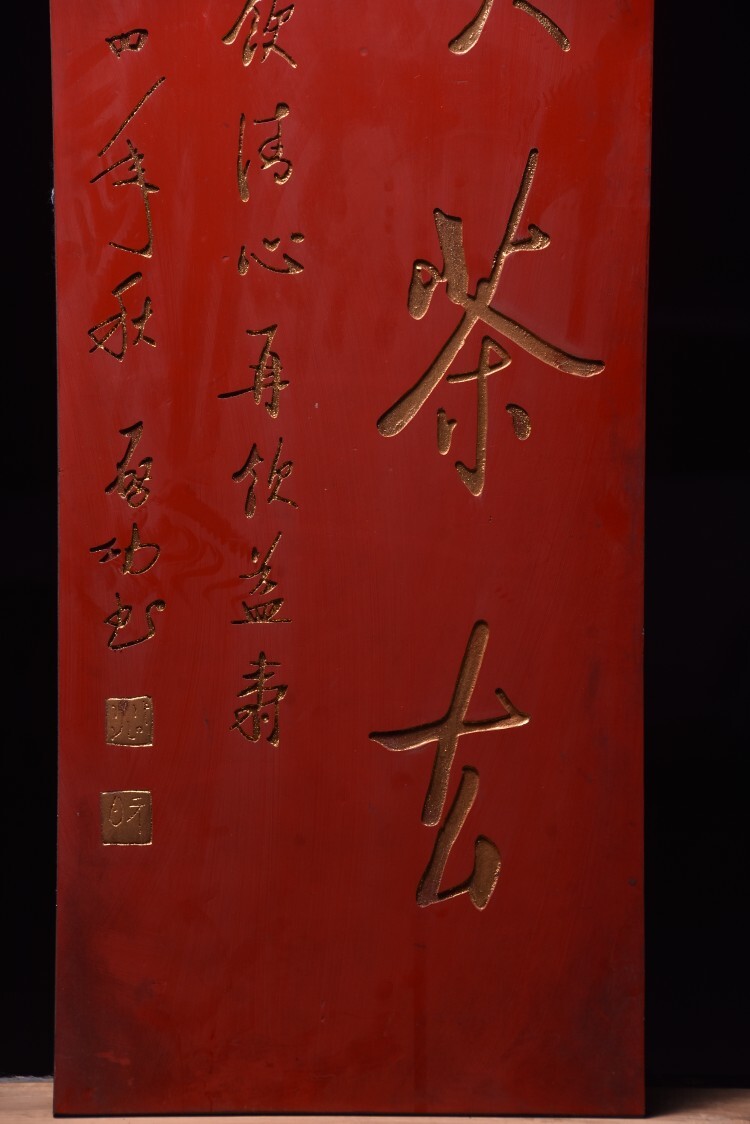 茶去
飲清心再飲益壽
四年秋 启功书